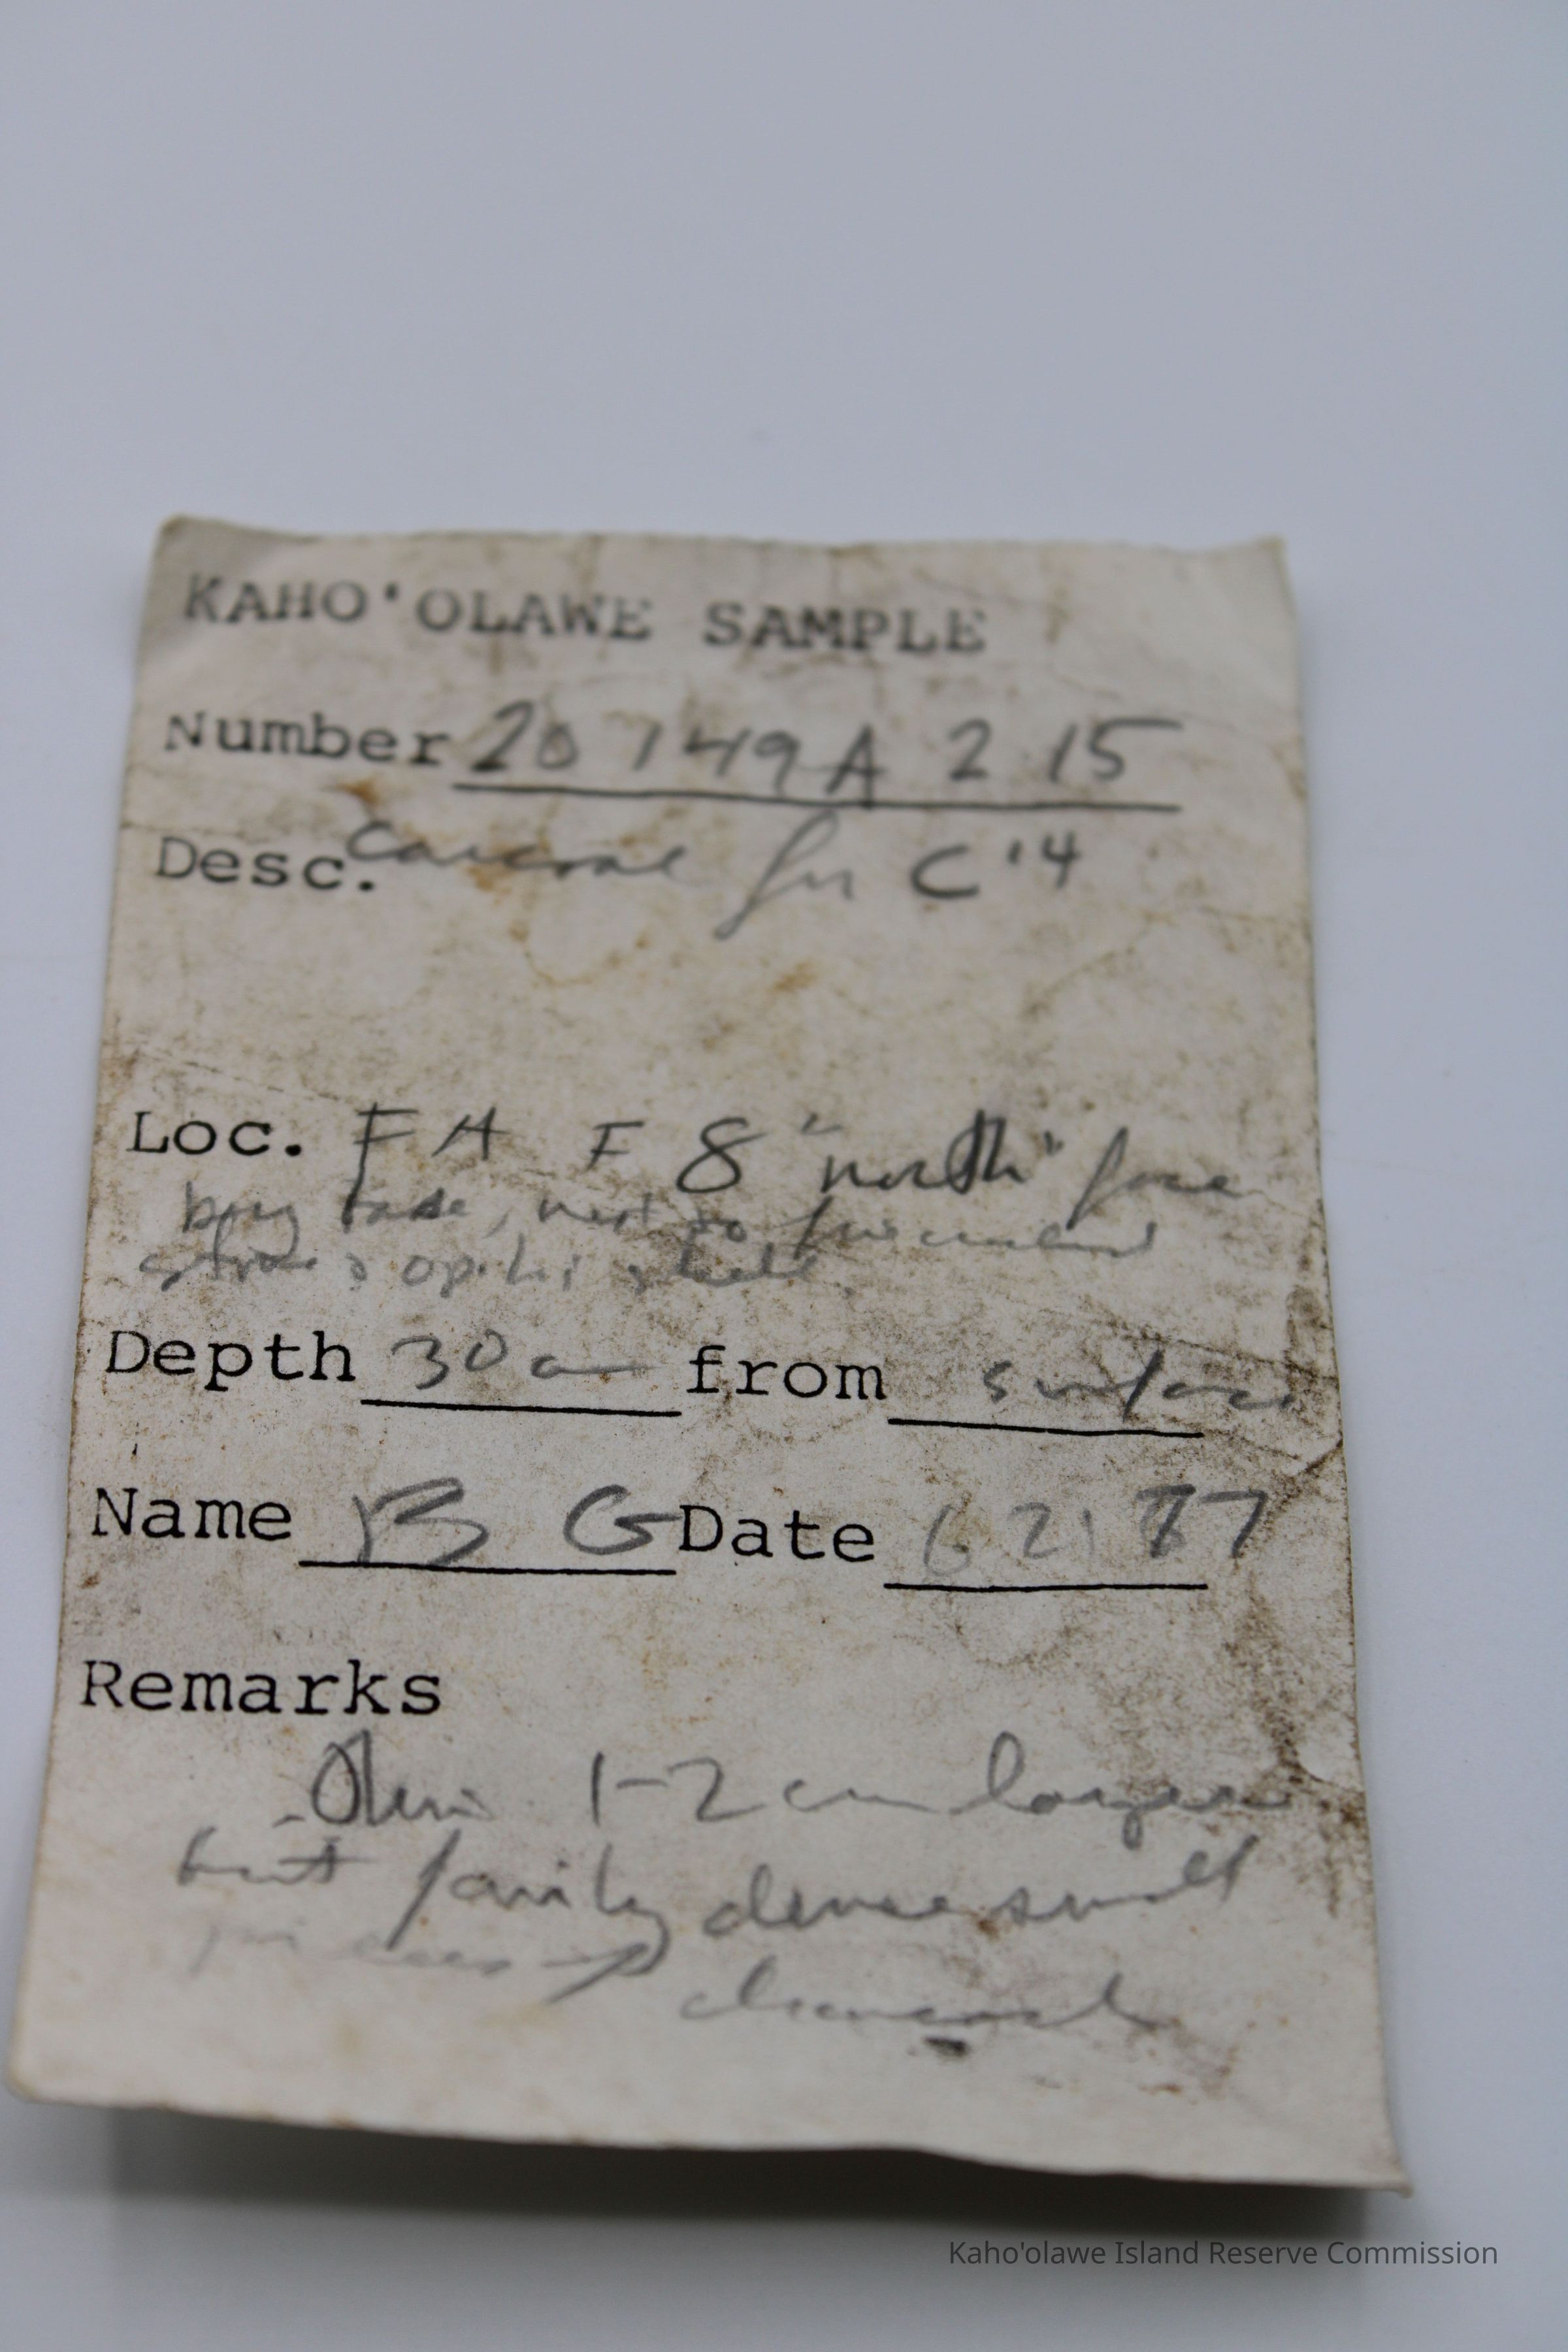 KAHO'OLAWE SAMPLE
Number 20 749A 2 15
Desc. for C14
Loc. FA F 8 "north" face
next to
opihi shell
Depth 30 cm from surface
Name B G Date 6 21 77
Remarks
1-2 cm
but fairly dense small
pieces charcoal
Kaho'olawe Island Reserve Commission